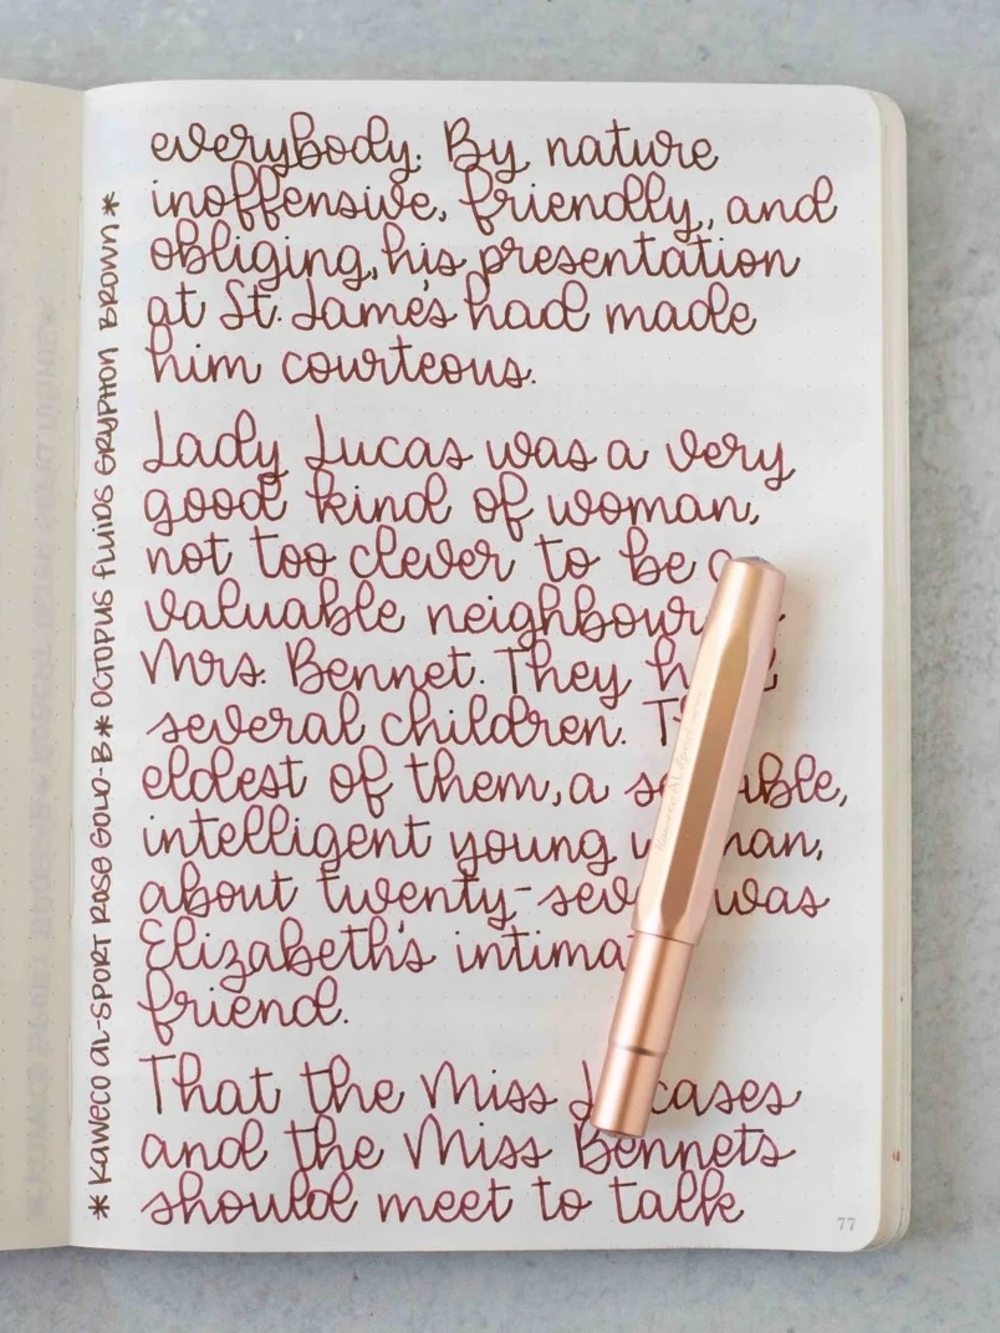 everybody. By nature
inoffensive, friendly, and
obliging, his presentation
at St. James's had made
him courteous.
Lady Lucas was a very
good kind of woman,
not too clever to be a
valuable neighbour
Mrs. Bennet. They
several children.
eldest of them, a
intelligent young
about twenty- was
Elizabeth's
friend.
That the Miss
and the Miss Bennets
should meet to talk
77
* KAWECO AL-SPORT ROSE GOLD-B * OCTOPUS FLUIDS GRYPHON BROWN *
Kaweco AL Sport